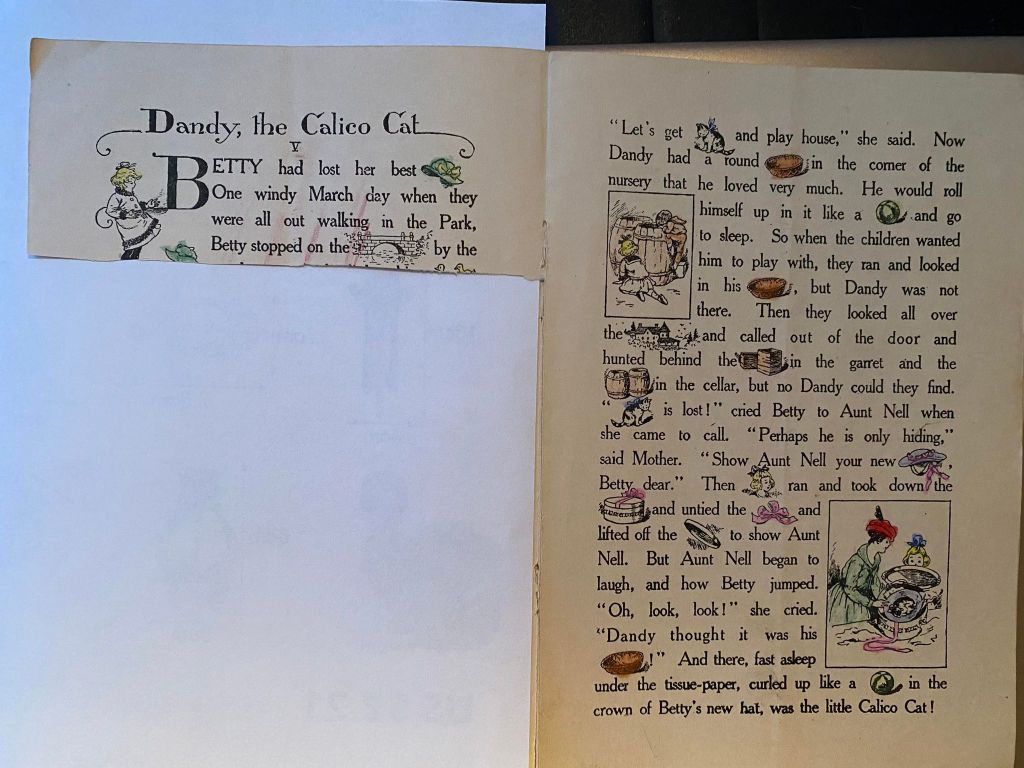 Dandy, the Calico Cat
V
BETTY had lost her best
One windy March day when they
were all out walking in the Park,
Betty stopped on the by the
"Let's get and play house," she said. Now
Dandy had a round in the corner of the
nursery that he loved very much. He would roll
himself up in it like a and go
to sleep. So when the children wanted
him to play with, they ran and looked
in his , but Dandy was not
there. Then they looked all over
the and called out of the door and
hunted behind the in the garret and the
in the cellar, but no Dandy could they find.
" is lost!" cried Betty to Aunt Nell when
she came to call. "Perhaps he is only hiding,"
said Mother. "Show Aunt Nell your new ,
Betty dear." Then ran and took down the
and untied the and
lifted off the to show Aunt
Nell. But Aunt Nell began to
laugh, and how Betty jumped.
"Oh, look, look!" she cried.
"Dandy thought it was his
!" And there, fast asleep
under the tissue-paper, curled up like a in the
crown of Betty's new hat, was the little Calico Cat!